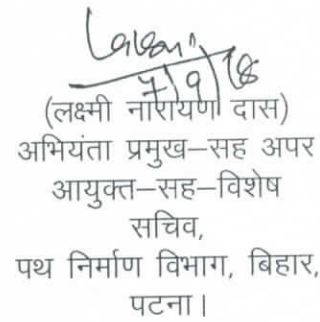 7/9/18
(लक्ष्मी नारायण दास)
अभियंता प्रमुख–सह अपर
आयुक्त–सह–विशेष
सचिव,
पथ निर्माण विभाग, बिहार,
पटना।